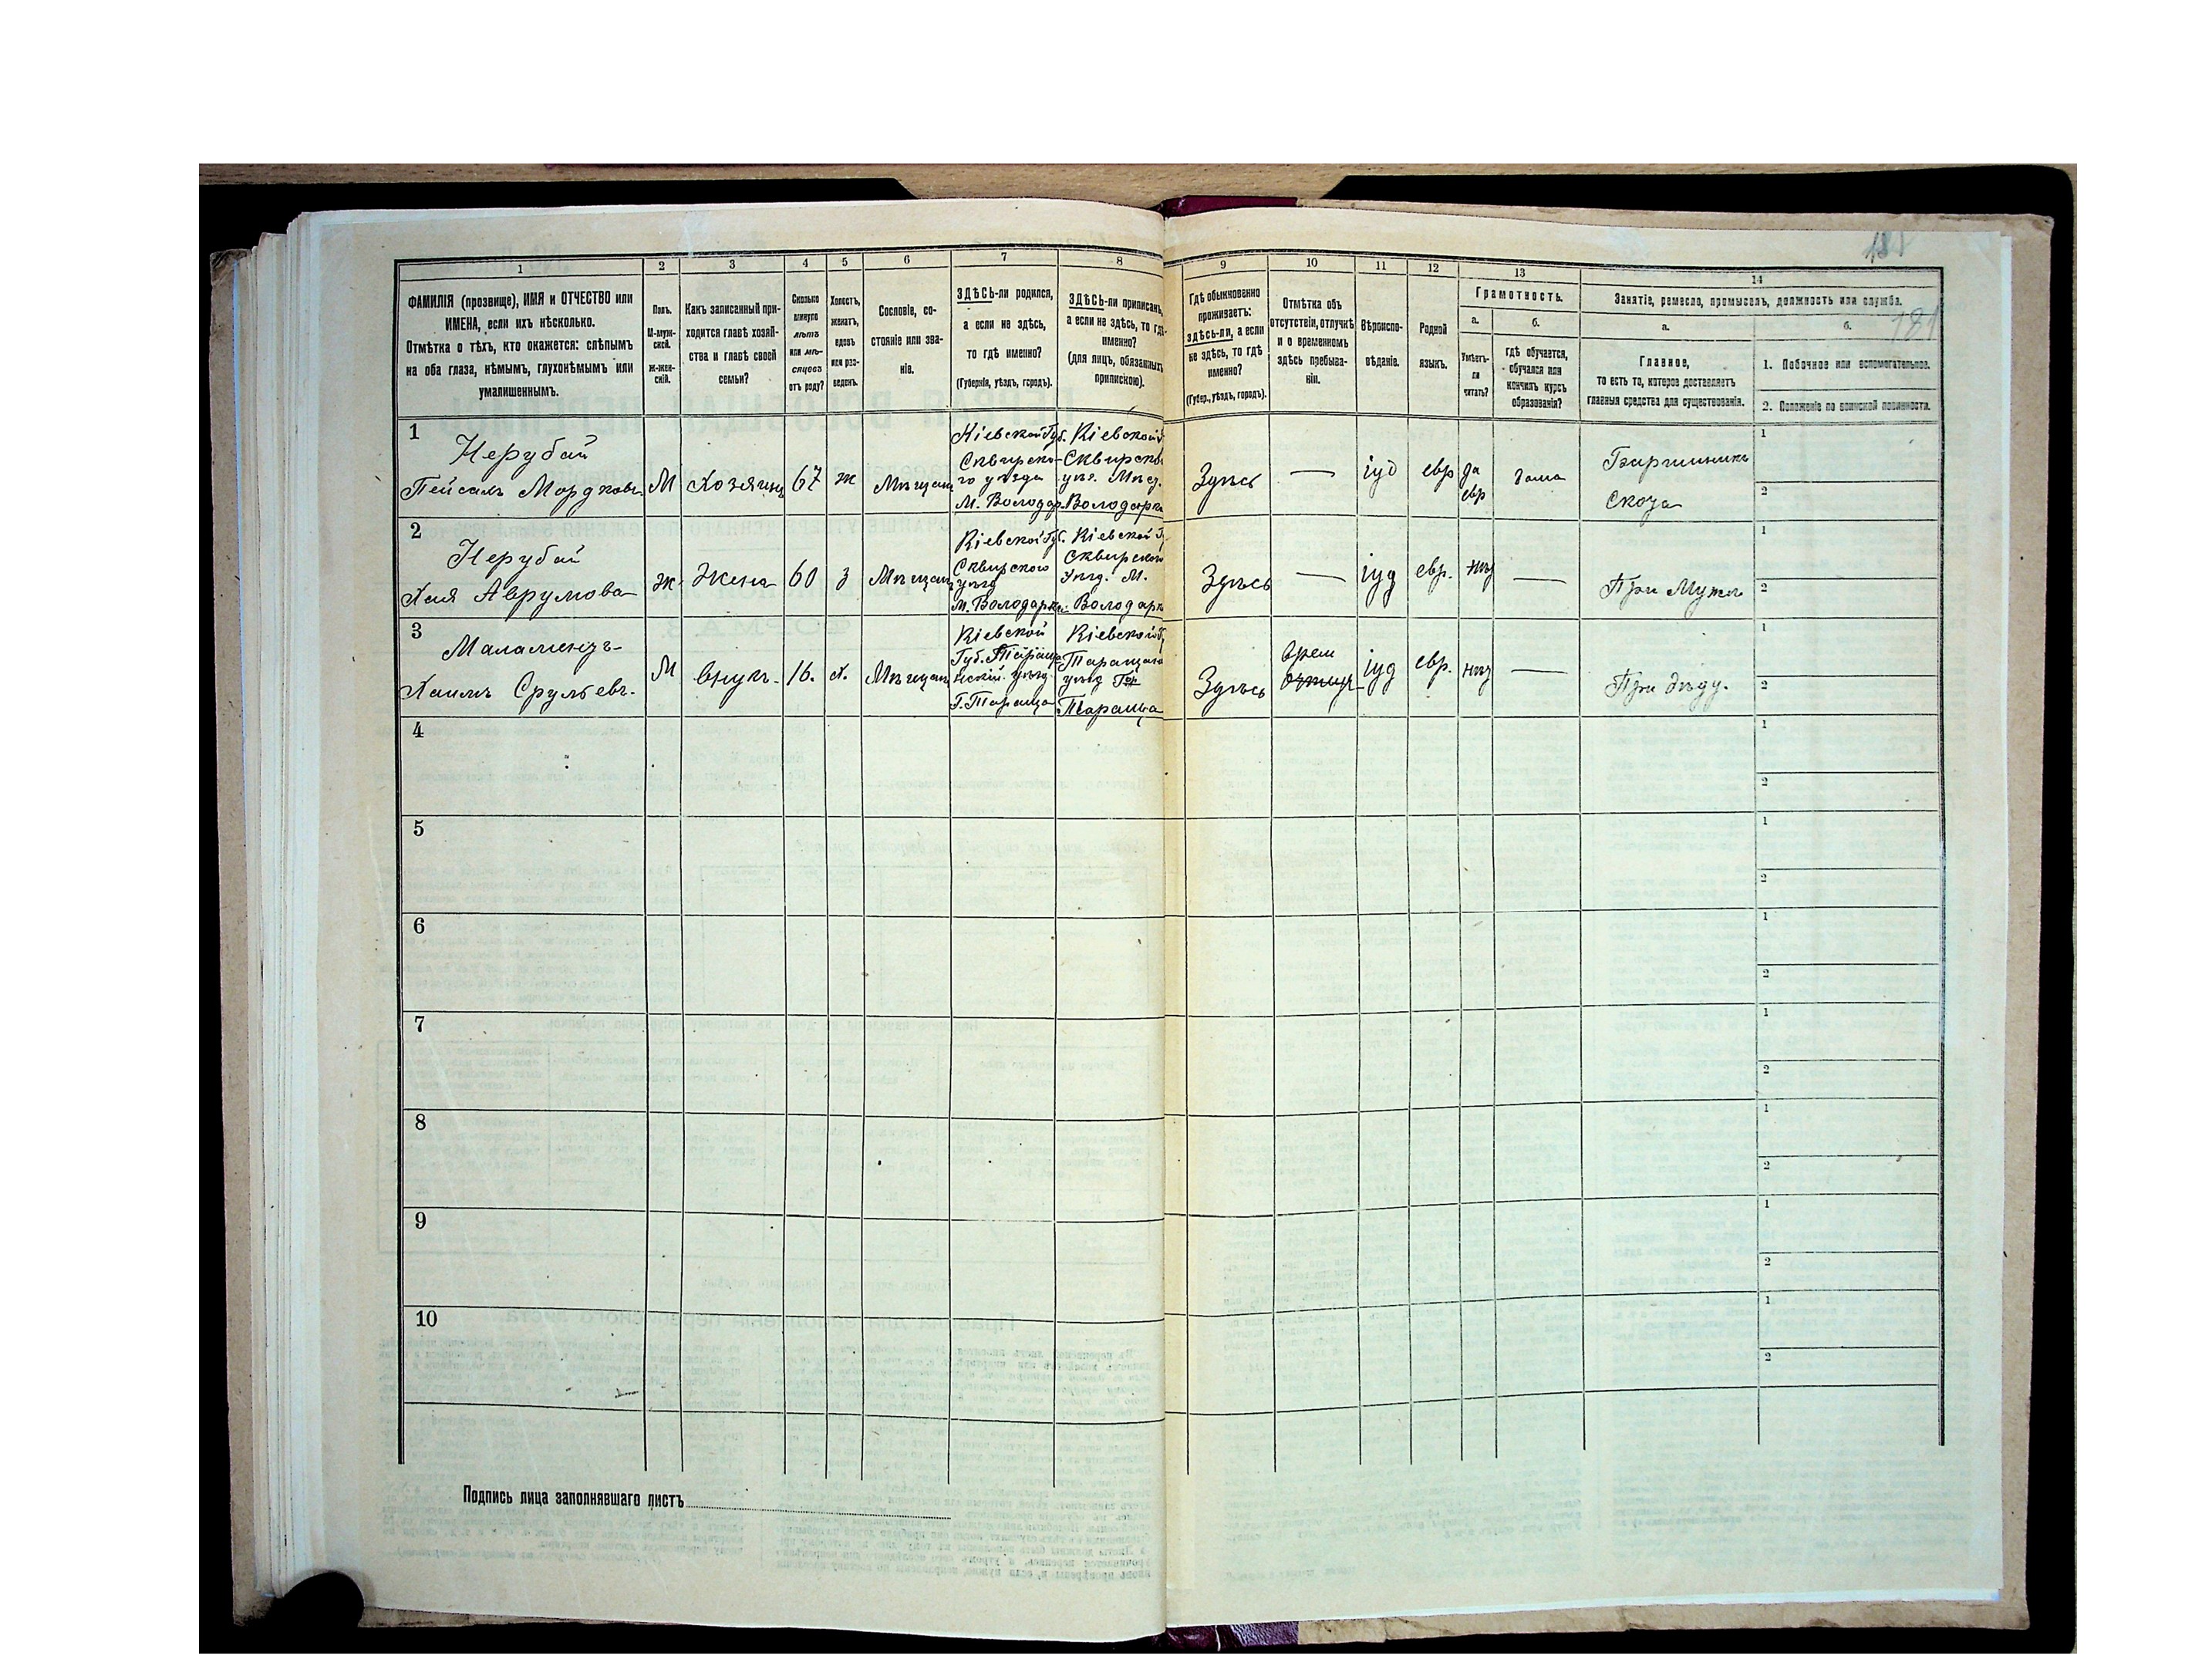 181
181
1
2
3
4
5
6
7
8
9
10
11
12
13
14
ФАМИЛІЯ (прозвище), ИМЯ и ОТЧЕСТВО или
ИМЕНА, если ихъ нѣсколько.
Отмѣтка о тѣхъ, кто окажется: слѣпымъ
на оба глаза, нѣмымъ, глухонѣмымъ или
умалишеннымъ.
Полъ.
М-муж-
ской.
Ж-жен-
скій.
Какъ записанный при-
ходится главѣ хозяй-
ства и главѣ своей
семьи?
Сколько
минуло
лѣтъ
или мѣ-
сяцевъ
отъ роду?
Холостъ,
женатъ,
вдовъ
или раз-
веденъ.
Сословіе, со-
стояніе или зва-
ніе.
ЗДѢСЬ-ли родился,
а если не здѣсь,
то гдѣ именно?
(Губернія, уѣздъ, городъ).
ЗДѢСЬ-ли приписанъ,
а если не здѣсь, то гдѣ
именно?
(для лицъ, обязанныхъ
припискою).
Гдѣ обыкновенно
проживаетъ:
здѣсь-ли, а если
не здѣсь, то гдѣ
именно?
(Губер., уѣздъ, городъ).
Отмѣтка объ
отсутствіи, отлучкѣ
и о временномъ
здѣсь пребыва-
ніи.
Вѣроиспо-
вѣданіе.
Родной
языкъ.
Грамотность.
а.
б.
Умѣетъ-
ли
читать?
гдѣ обучается,
обучался или
кончилъ курсъ
образованія?
Занятіе, ремесло, промыселъ, должность или служба.
а.
б.
Главное,
то есть то, которое доставляетъ
главныя средства для существованія.
1. Побочное или вспомогательное.
2. Положеніе по воинской повинности.
1
Нерубай
Пейсахъ Мордковъ
М
Хозяинъ
67
ж
Мѣщан
Кіевской Губ.
Сквирско-
го уѣзда
М. Володар
Кіевской Г
Сквирско
уѣз. Мѣс.
Володарк
Здѣсь
—
іуд
евр
да
евр
дома
скота
1
2
2
Нерубай
Хая Аврумова
ж
Жена
60
з
Мѣщан
Кіевской Губ.
Сквирского
уѣзд
М. Володарки
Кіевской Г
Сквирского
Уѣзд. М.
Володарк
Здѣсь
—
іуд
евр.
нѣт
—
При Мужѣ
1
2
3
Маламендъ
Хаимъ Срульевъ.
М
внукъ.
16.
х.
Мѣщан
Кіевской
Губ. Тараща
нскій уѣзд.
Г. Тараща
Кіевской Г
Таращан
уѣзд Г
Тараща
Здѣсь
врем
іуд
евр.
нѣт
—
При дѣду.
1
2
4
1
2
5
1
2
6
1
2
7
1
2
8
1
2
9
1
2
10
1
2
Подпись лица заполнявшаго листъ